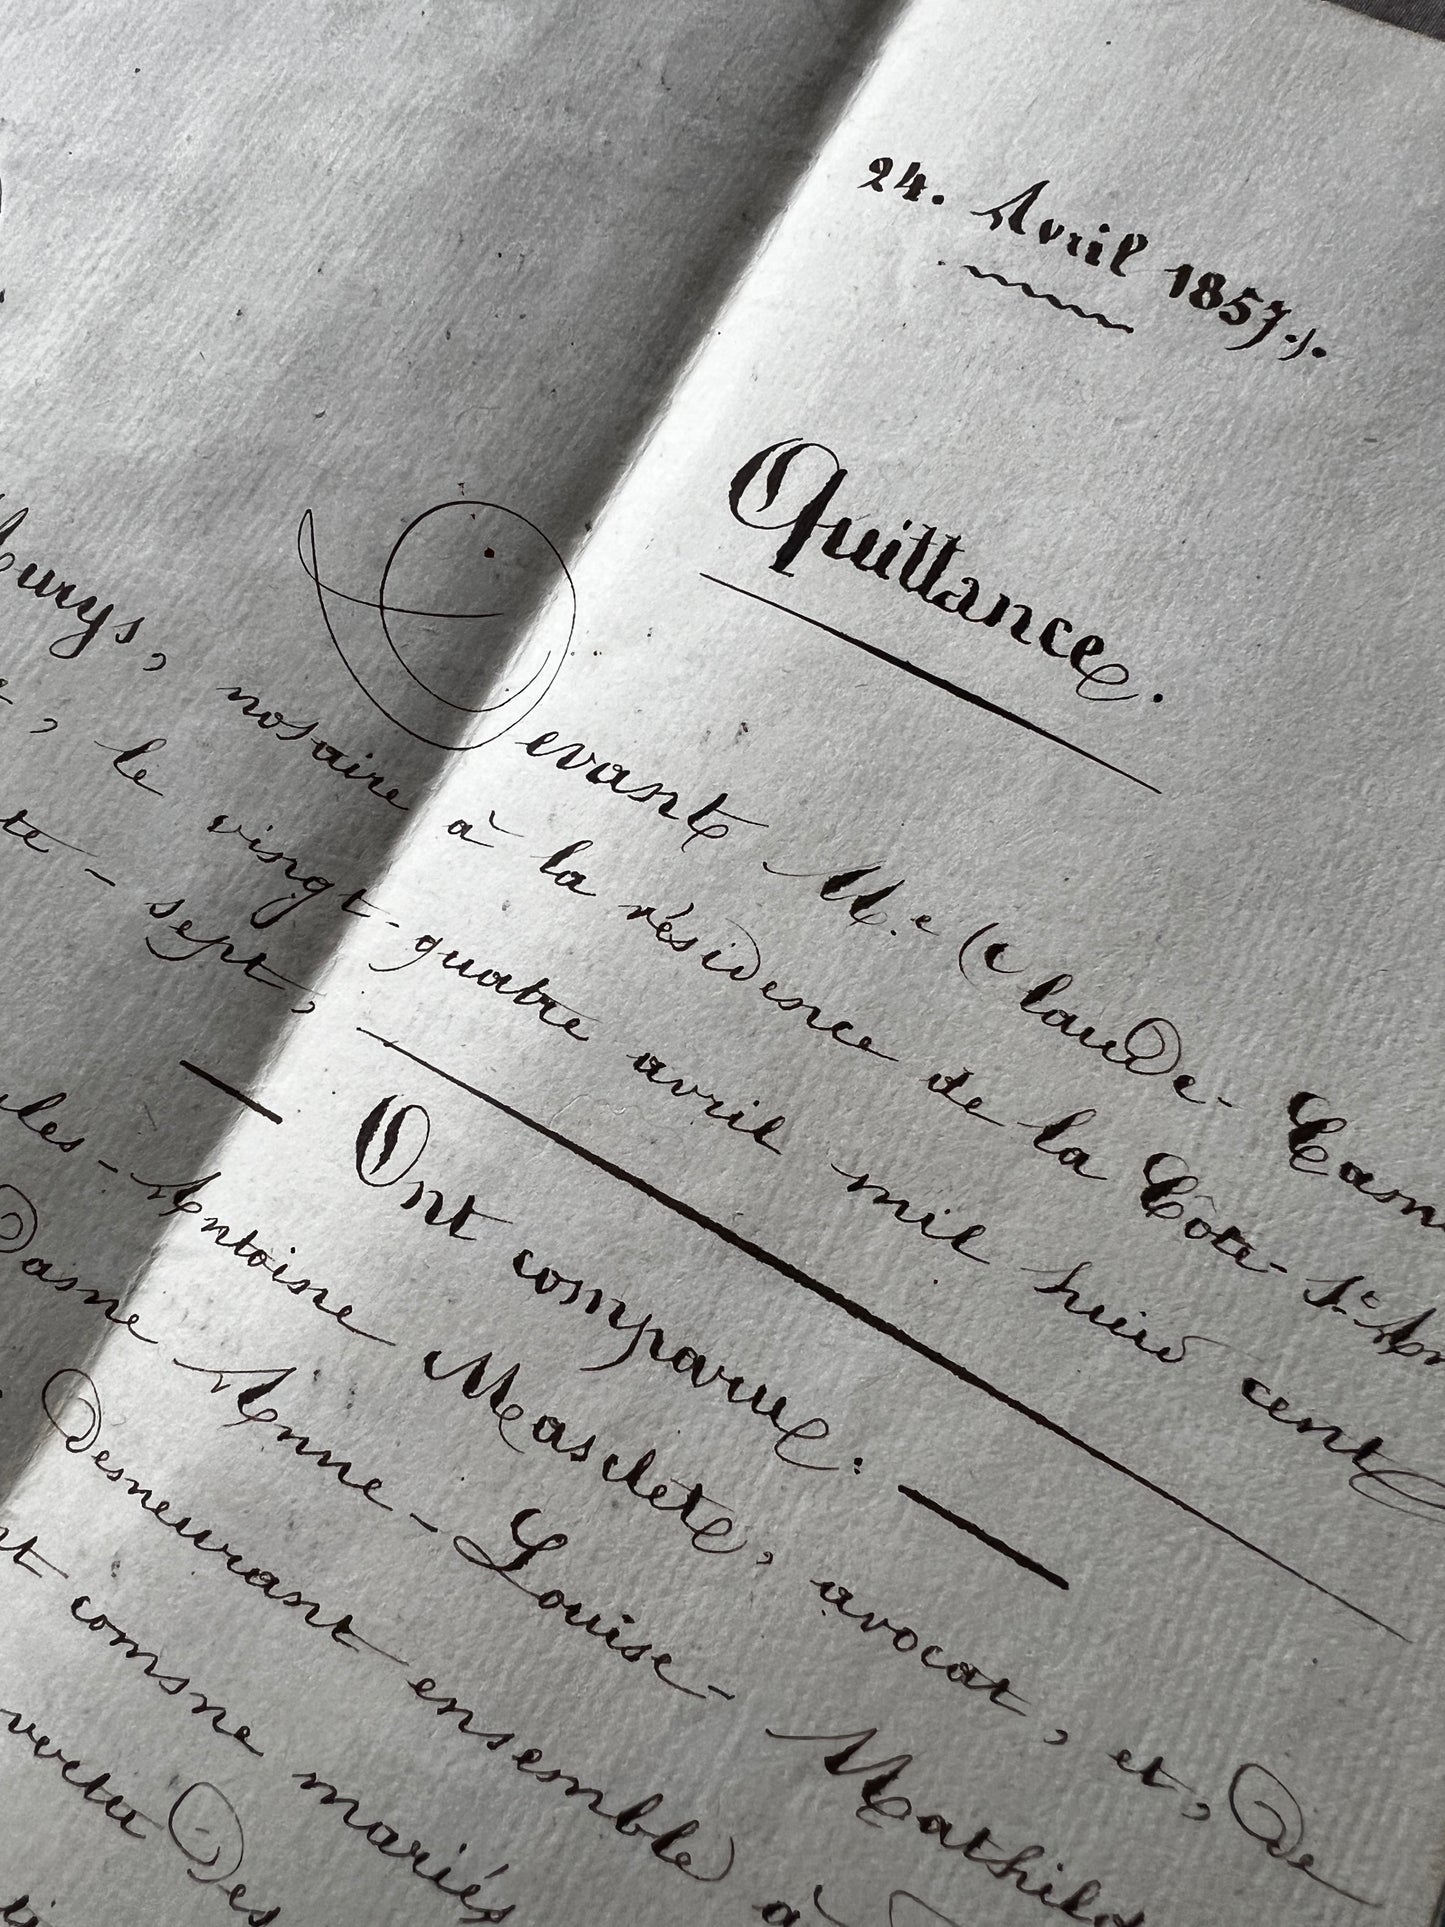 24. Avril 1857.
Quittance.
Devant Me Claude-Cam
urys, notaire à la résidence de la Côte-St-An
, le vingt-quatre avril mil huit cent
te-sept,
Ont comparu :
les-Antoine Masclet, avocat, et, De
Dame Anne-Louise-Mathild
Demeurant ensemble à
nt comme mariés
vertu Des